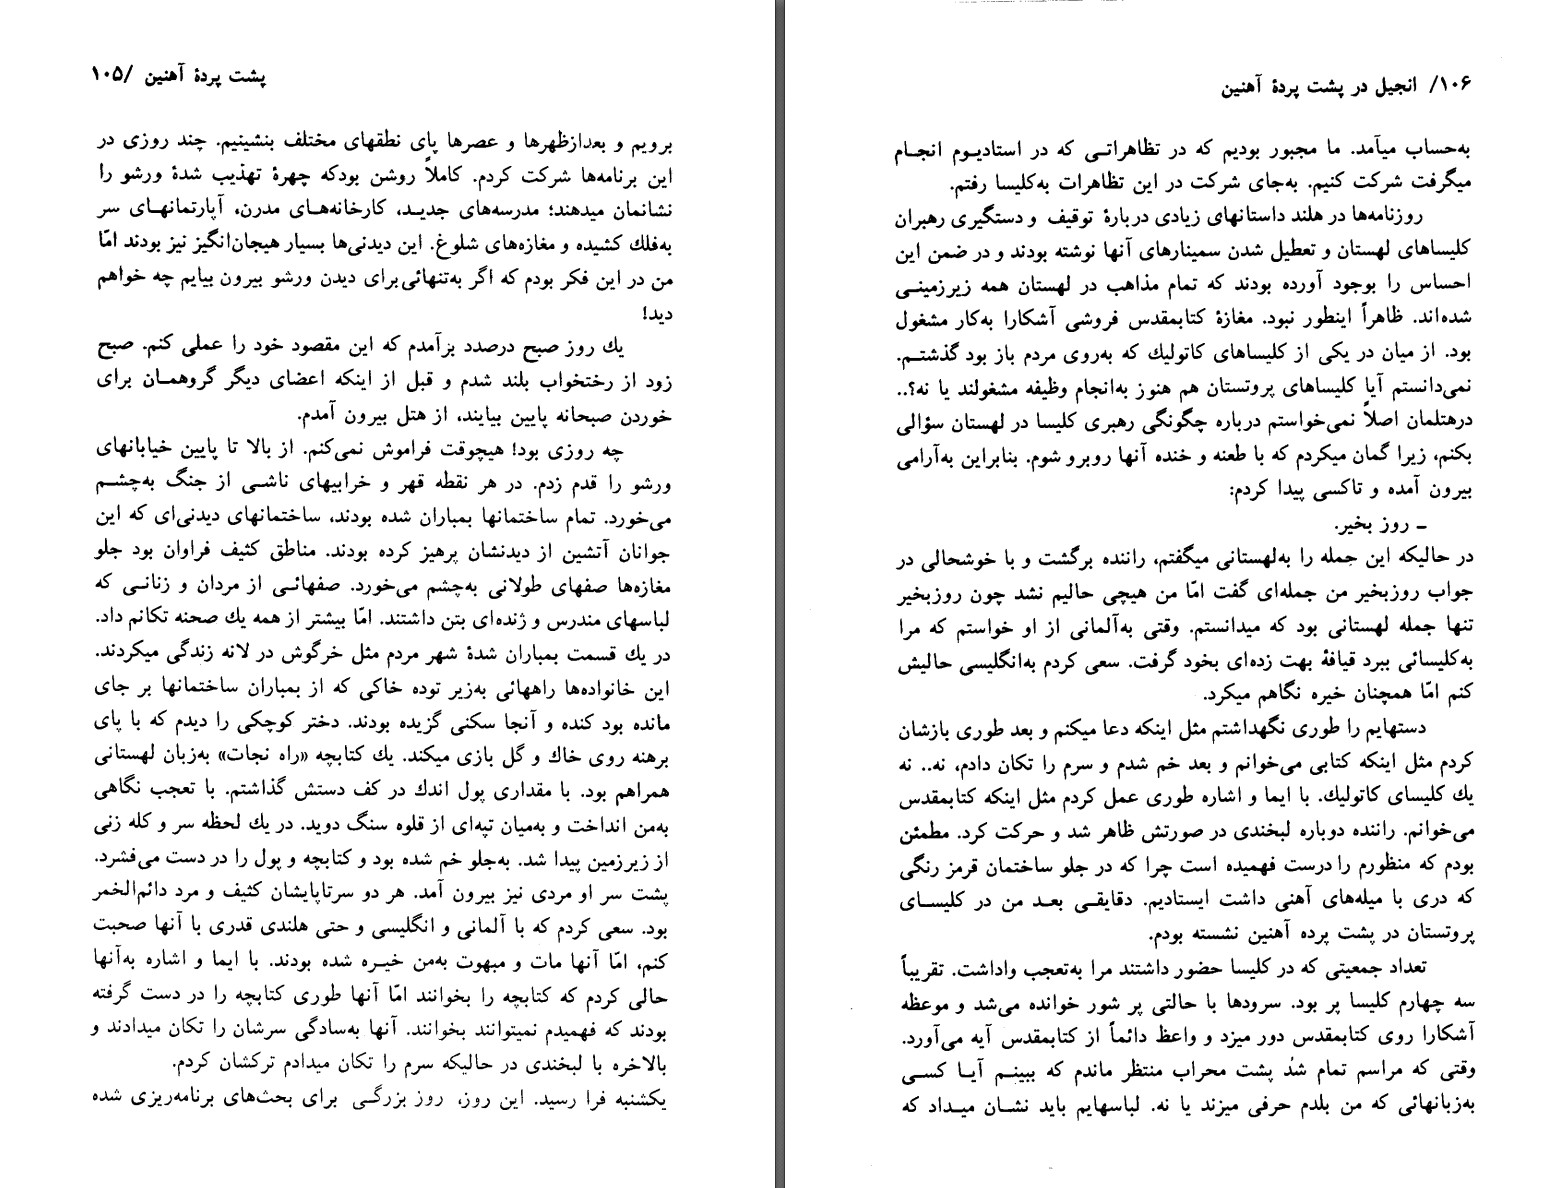 پشت پردهٔ آهنین /۱۰۵
برویم و بعدازظهرها و عصرها پای نطقهای مختلف بنشینیم. چند روزی در
این برنامه‌ها شرکت کردم. کاملاً روشن بودکه چهرهٔ تهذیب شدهٔ ورشو را
نشانمان میدهند؛ مدرسه‌های جدید، کارخانه‌های مدرن، آپارتمانهای سر
به‌فلك کشیده و مغازه‌های شلوغ. این دیدنی‌ها بسیار هیجان‌انگیز نیز بودند امّا
من در این فکر بودم که اگر به‌تنهائی برای دیدن ورشو بیرون بیایم چه خواهم
دید!
یك روز صبح درصدد برآمدم که این مقصود خود را عملی کنم. صبح
زود از رختخواب بلند شدم و قبل از اینکه اعضای دیگر گروهمان برای
خوردن صبحانه پایین بیایند، از هتل بیرون آمدم.
چه روزی بود! هیچوقت فراموش نمی‌کنم. از بالا تا پایین خیابانهای
ورشو را قدم زدم. در هر نقطه قهر و خرابیهای ناشی از جنگ به‌چشم
می‌خورد. تمام ساختمانها بمباران شده بودند، ساختمانهای دیدنی‌ای که این
جوانان آتشین از دیدنشان پرهیز کرده بودند. مناطق کثیف فراوان بود جلو
مغازه‌ها صفهای طولانی به‌چشم می‌خورد. صفهائی از مردان و زنانی که
لباسهای مندرس و ژنده‌ای بتن داشتند. امّا بیشتر از همه یك صحنه تکانم داد.
در یك قسمت بمباران شدهٔ شهر مردم مثل خرگوش در لانه زندگی میکردند.
این خانواده‌ها راههائی به‌زیر توده خاکی که از بمباران ساختمانها بر جای
مانده بود کنده و آنجا سکنی گزیده بودند. دختر کوچکی را دیدم که با پای
برهنه روی خاك و گل بازی میکند. یك کتابچه «راه نجات» به‌زبان لهستانی
همراهم بود. با مقداری پول اندك در کف دستش گذاشتم. با تعجب نگاهی
به‌من انداخت و به‌میان تپه‌ای از قلوه سنگ دوید. در یك لحظه سر و کله زنی
از زیرزمین پیدا شد. به‌جلو خم شده بود و کتابچه و پول را در دست می‌فشرد.
پشت سر او مردی نیز بیرون آمد. هر دو سرتاپایشان کثیف و مرد دائم‌الخمر
بود. سعی کردم که با آلمانی و انگلیسی و حتی هلندی قدری با آنها صحبت
کنم، امّا آنها مات و مبهوت به‌من خیره شده بودند. با ایما و اشاره به‌آنها
حالی کردم که کتابچه را بخوانند امّا آنها طوری کتابچه را در دست گرفته
بودند که فهمیدم نمیتوانند بخوانند. آنها به‌سادگی سرشان را تکان میدادند و
بالاخره با لبخندی در حالیکه سرم را تکان میدادم ترکشان کردم.
یکشنبه فرا رسید. این روز، روز بزرگی برای بحث‌های برنامه‌ریزی شده
۱۰۶/ انجیل در پشت پردهٔ آهنین
به‌حساب میآمد. ما مجبور بودیم که در تظاهراتی که در استادیوم انجام
میگرفت شرکت کنیم. به‌جای شرکت در این تظاهرات به‌کلیسا رفتم.
روزنامه‌ها در هلند داستانهای زیادی دربارهٔ توقیف و دستگیری رهبران
کلیساهای لهستان و تعطیل شدن سمینارهای آنها نوشته بودند و در ضمن این
احساس را بوجود آورده بودند که تمام مذاهب در لهستان همه زیرزمینی
شده‌اند. ظاهراً اینطور نبود. مغازهٔ کتابمقدس فروشی آشکارا به‌کار مشغول
بود. از میان در یکی از کلیساهای کاتولیك که به‌روی مردم باز بود گذشتم.
نمی‌دانستم آیا کلیساهای پروتستان هم هنوز به‌انجام وظیفه مشغولند یا نه؟..
درهتلمان اصلاً نمی‌خواستم درباره چگونگی رهبری کلیسا در لهستان سؤالی
بکنم، زیرا گمان میکردم که با طعنه و خنده آنها روبرو شوم. بنابراین به‌آرامی
بیرون آمده و تاکسی پیدا کردم:
ـ روز بخیر.
در حالیکه این جمله را به‌لهستانی میگفتم، راننده برگشت و با خوشحالی در
جواب روزبخیر من جمله‌ای گفت امّا من هیچی حالیم نشد چون روزبخیر
تنها جمله لهستانی بود که میدانستم. وقتی به‌آلمانی از او خواستم که مرا
به‌کلیسائی ببرد قیافهٔ بهت زده‌ای بخود گرفت. سعی کردم به‌انگلیسی حالیش
کنم امّا همچنان خیره نگاهم میکرد.
دستهایم را طوری نگهداشتم مثل اینکه دعا میکنم و بعد طوری بازشان
کردم مثل اینکه کتابی می‌خوانم و بعد خم شدم و سرم را تکان دادم، نه.. نه
یك کلیسای کاتولیك. با ایما و اشاره طوری عمل کردم مثل اینکه کتابمقدس
می‌خوانم. راننده دوباره لبخندی در صورتش ظاهر شد و حرکت کرد. مطمئن
بودم که منظورم را درست فهمیده است چرا که در جلو ساختمان قرمز رنگی
که دری با میله‌های آهنی داشت ایستادیم. دقایقی بعد من در کلیسای
پروتستان در پشت پرده آهنین نشسته بودم.
تعداد جمعیتی که در کلیسا حضور داشتند مرا به‌تعجب واداشت. تقریباً
سه چهارم کلیسا پر بود. سرودها با حالتی پر شور خوانده می‌شد و موعظه
آشکارا روی کتابمقدس دور میزد و واعظ دائماً از کتابمقدس آیه می‌آورد.
وقتی که مراسم تمام شد پشت محراب منتظر ماندم که ببینم آیا کسی
به‌زبانهائی که من بلدم حرفی میزند یا نه. لباسهایم باید نشان میداد که